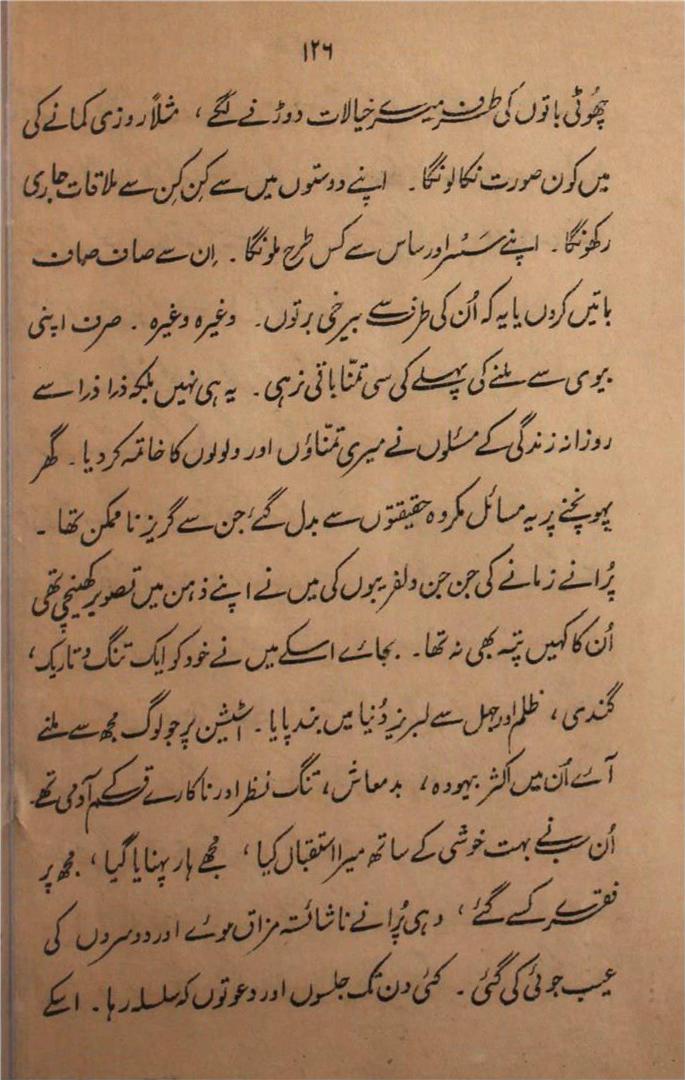 ۱۲۶
چھُوٹی باتوں کی طرف میرے خیالات دوڑنے لگے ، مثلاً روزی کمانے کی
میں کون صورت نکالونگا ۔ اپنے دوستوں میں سے کِن کِن سے ملاقات جاری
رکھونگا ۔ اپنے سَسُر اور ساس سے کس طرح ملونگا ۔ اِن سے صاف صاف
باتیں کروں یا یہ کہ اُن کی طرف سے بیرخی برتوں ۔ وغیرہ وغیرہ ۔ صرف اپنی
بیوی سے ملنے کی پہلے کی سی تمنّا باقی نرہی ۔ یہ ہی نہیں بلکہ ذرا ذرا سے
روزانہ زندگی کے مسئلوں نے میری تمنّاؤں اور ولولوں کا خاتمہ کر دیا ۔ گھر
پہونچنے پر یہ مسائل مکروہ حقیقتوں سے بدل گئے جن سے گریز نا ممکن تھا ۔
پُرانے زمانے کی جن جن دلفریبوں کی میں نے اپنے ذہن میں تصویر کھینچی تھی
اُن کا کہیں پتہ بھی نہ تھا ۔ بجائے اسکے میں نے خود کو ایک تنگ و تاریک ،
گندی ، ظلم اور جہل سے لبریز دُنیا میں بند پایا ۔ اسٹیشن پر جو لوگ مجھ سے ملنے
آئے اُن میں اکثر بیہودہ ، بدمعاش ، تنگ نظر اور ناکارے قسم کے آدمی تھے
اُن سب نے بہت خوشی کے ساتھ میرا استقبال کیا ، مجھے ہار پہنایا گیا ، مجھ پر
فقرے کسے گئے ، وہی پُرانے ناشائستہ مزاق ہوئے اور دوسروں کی
عیب جوئی کی گئی ۔ کئی دن تک جلسوں اور دعوتوں کہ سلسلہ رہا ۔ اسکے